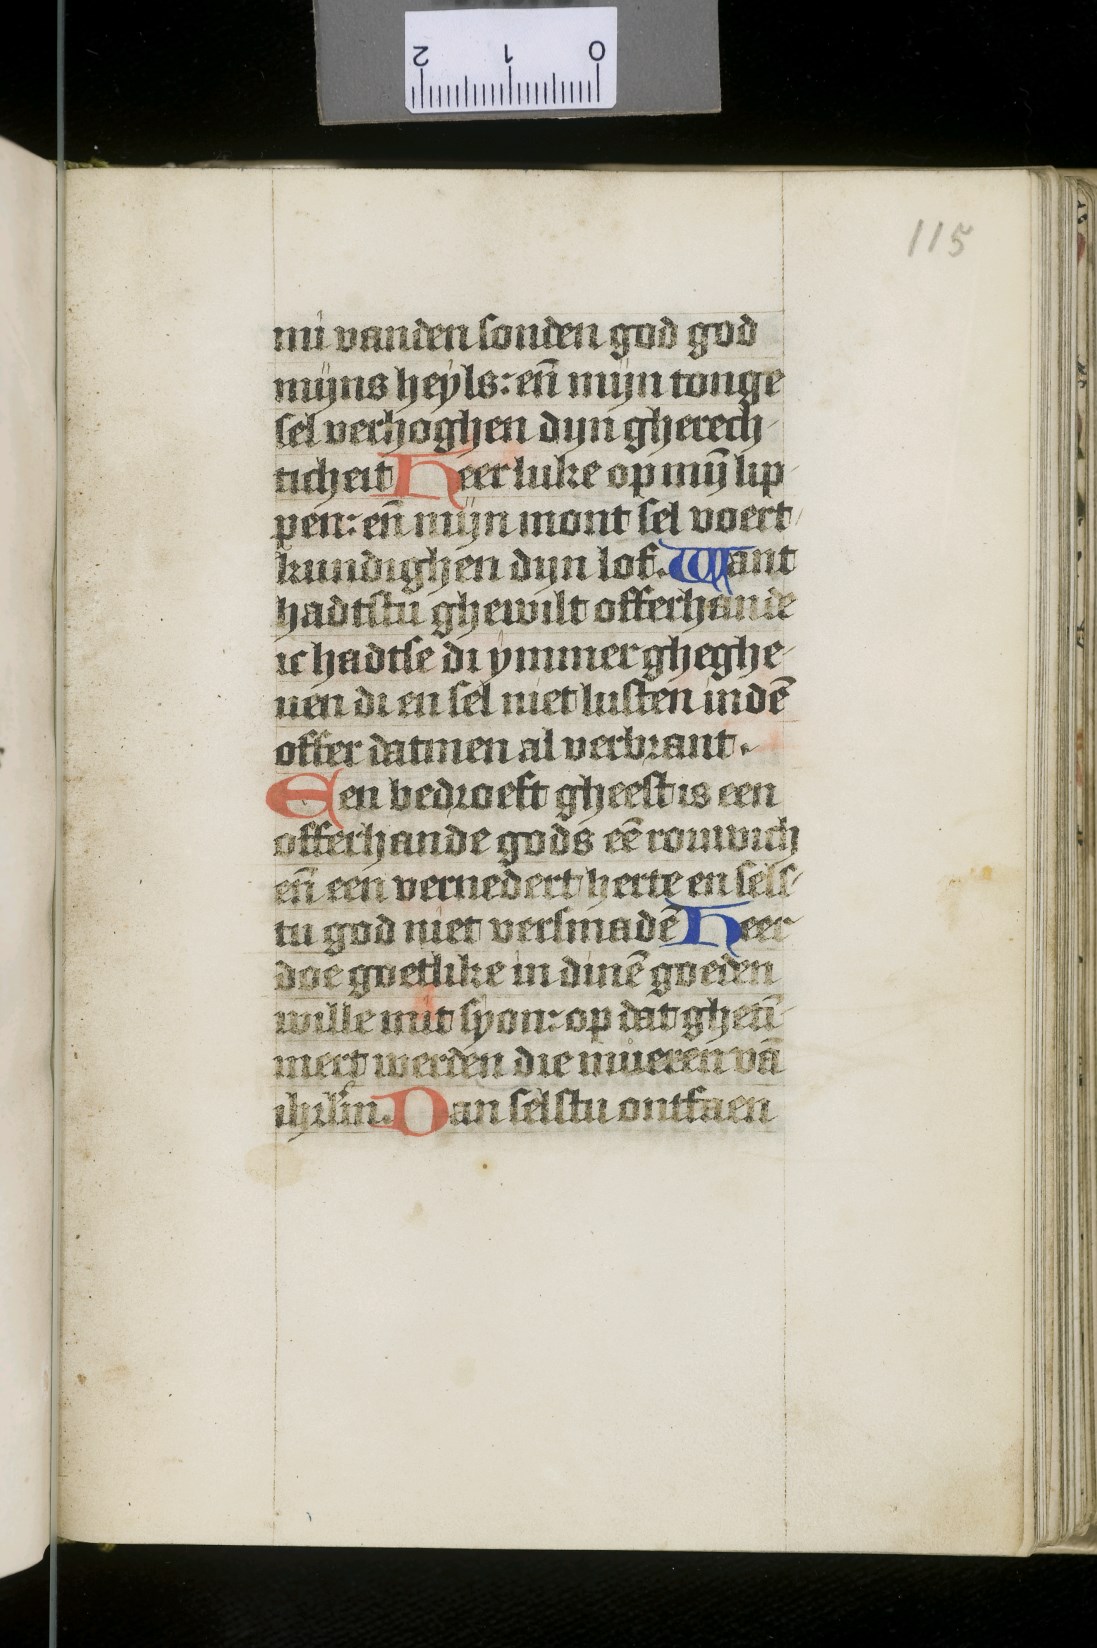 115
mi vanden sonden god god
mijns heyls: en̄ mijn tonge
sel verhoghen dijn gherech-
ticheit Heer luke op mij̄ lip-
pen: en̄ mijn mont sel voert-
kundighen dijn lof. Want
hadtstu ghewilt offerhande
ic hadtse di ymmer gheghe-
uen di en sel niet lusten indē
offer datmen al verbrant.
Een bedroeft gheest is een
offerhande gods eē rouwich
en̄ een vernedert herte en sels-
tu god niet versmadē Heer
doe goetlike in dinē goeden
wille mit syon: op dat ghetī-
mert werden die mueren vā
ihrl̄m. Dan selstu ontfaen
2 1 0